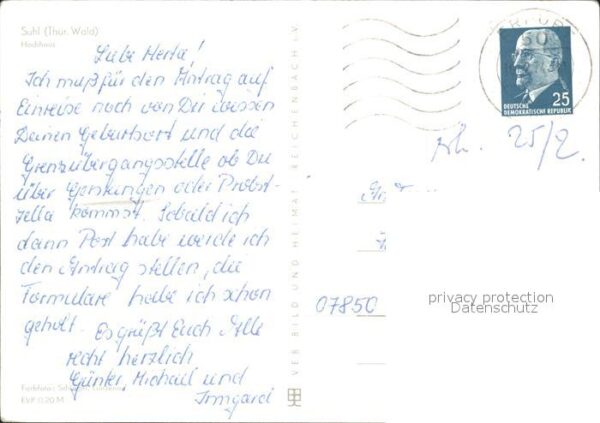 Suhl (Thür. Wald)
Hochhaus
Liebe Herta!
Ich muß für den Antrag auf
Einreise noch von Dir wissen
Deinen Geburtsort und die
Grenzübergangsstelle ob Du
über Gerstungen oder Probst-
zella kommst. Sobald ich
dann Post habe werde ich
den Antrag stellen, die
Formulare habe ich schon
geholt. Es grüßt Euch Alle
recht herzlich
Günter, Michael und
Irmgard
Farbfoto:
EVP 0,20 M
VEB BILD UND HEIMAT REICHENBACH i. V.
ERFURT
50
DEUTSCHE
DEMOKRATISCHE REPUBLIK
25
25/2.
07850
privacy protection
Datenschutz